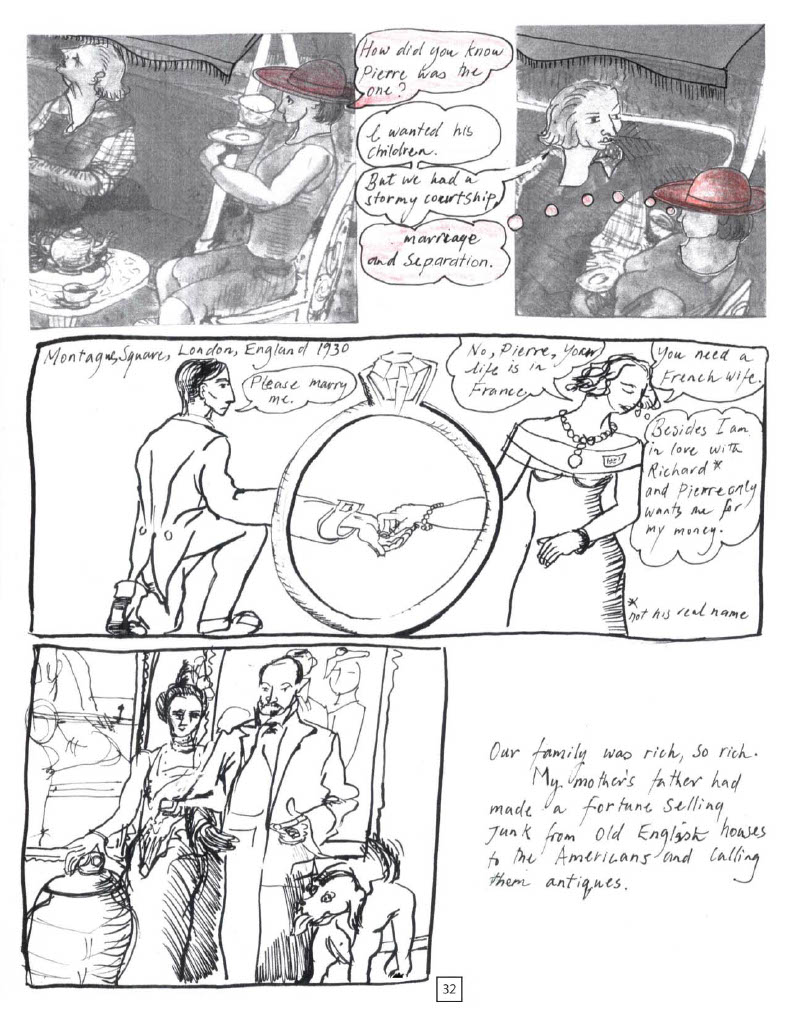 How did you know
Pierre was the
one?
I wanted his
children.
But we had a
stormy courtship,
marriage
and separation.
Montagu Square, London, England 1930
Please marry
me.
No, Pierre, your
life is in
France.
You need a
French wife.
Besides I am
in love with
Richard*
and Pierre only
wants me for
my money.
*
not his real name
Our family was rich, so rich.
My mother's father had
made a fortune selling
junk from old English houses
to the Americans and calling
them antiques.
32